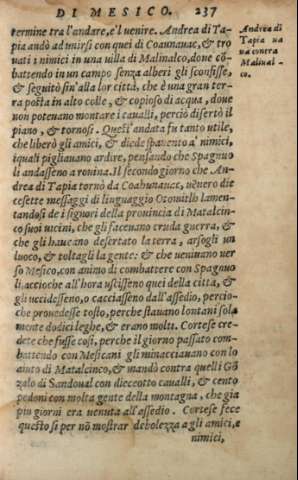 DI MESICO. 237
termine tra l'andare, e'l uenire. Andrea di Ta-
pia andò ad unirsi con quei di Coahunauac, & tro
uati i nimici in una uilla di Malinalco, doue cō-
battendo in un campo senza alberi gli sconfisse,
& seguitò sin'alla lor città, che è una gran ter-
ra posta in alto colle, & copioso di acqua, doue
non potenano montare i caualli, perciò disertò il
piano, & tornosi. Quest'andata fu tanto utile,
che liberò gli amici, & diede spauento a' nimici,
i quali pigliauano ardire, pensando che Spagnuo
li andasseno a rouina. Il secondo giorno che An-
drea di Tapia tornò da Coahunauac, uēnero die
cesette messaggi di linguaggio Otomitlh lamen-
tandosi de i signori della prouincia di Matalcin-
co suoi uicini, che gli faceuano cruda guerra, &
che gli haueano desertato la terra, arsogli un
luoco, & toltagli la gente: & che ueniuano uer
so Mesico, con animo di combattere con Spagnuo
li, accioche all'hora uscissero quei della città, &
gli uccidesseno, o cacciasseno dall'assedio, percio-
che prouedesse tosto, perche stauano lontani sola
mente dodici leghe, & erano molti. Cortese cre-
dete che fusse così, perche il giorno passato com-
battendo con Mesicani gli minacciauano con lo
aiuto di Matalcinco, & mandò contra quelli Gō
zalo di Sandoual con dieceotto caualli, & cento
pedoni con molta gente della montagna, che già
piu giorni era uenuta all'assedio. Cortese fece
questo sì per nō mostrar debolezza a gli amici, e
nimici,
Andrea di
Tapia ua
ua contra
Malinal-
co.